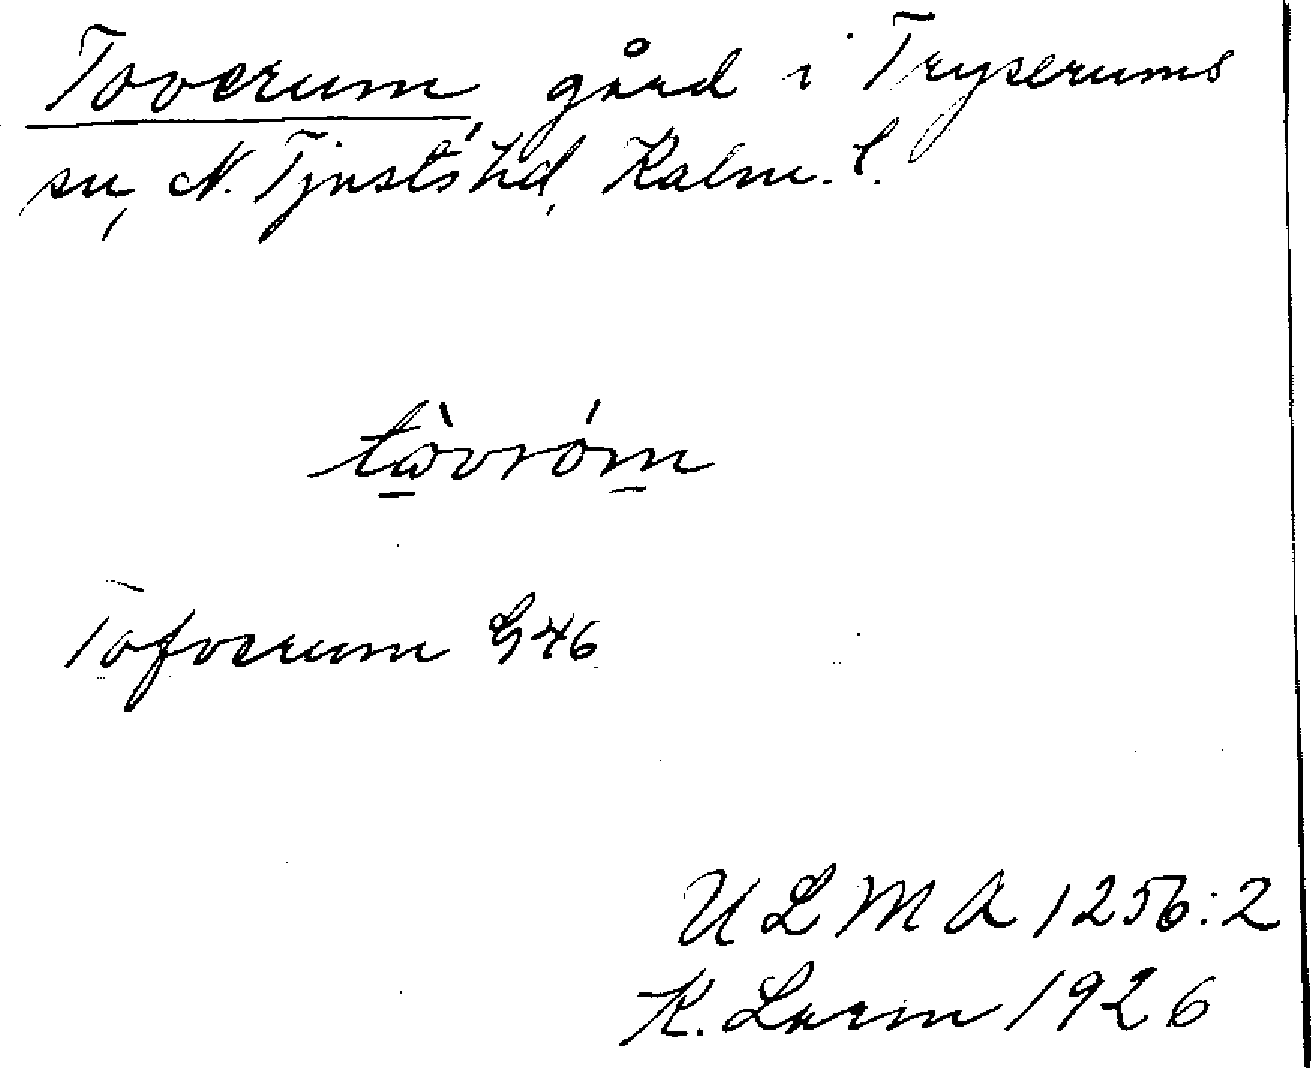 Toverum, gård i Tryserums
sn, N. Tjusts hd, Kalm. l.
tòvróm
Tofverum G 46
ULMA 1256:2
K. Lorm 1926